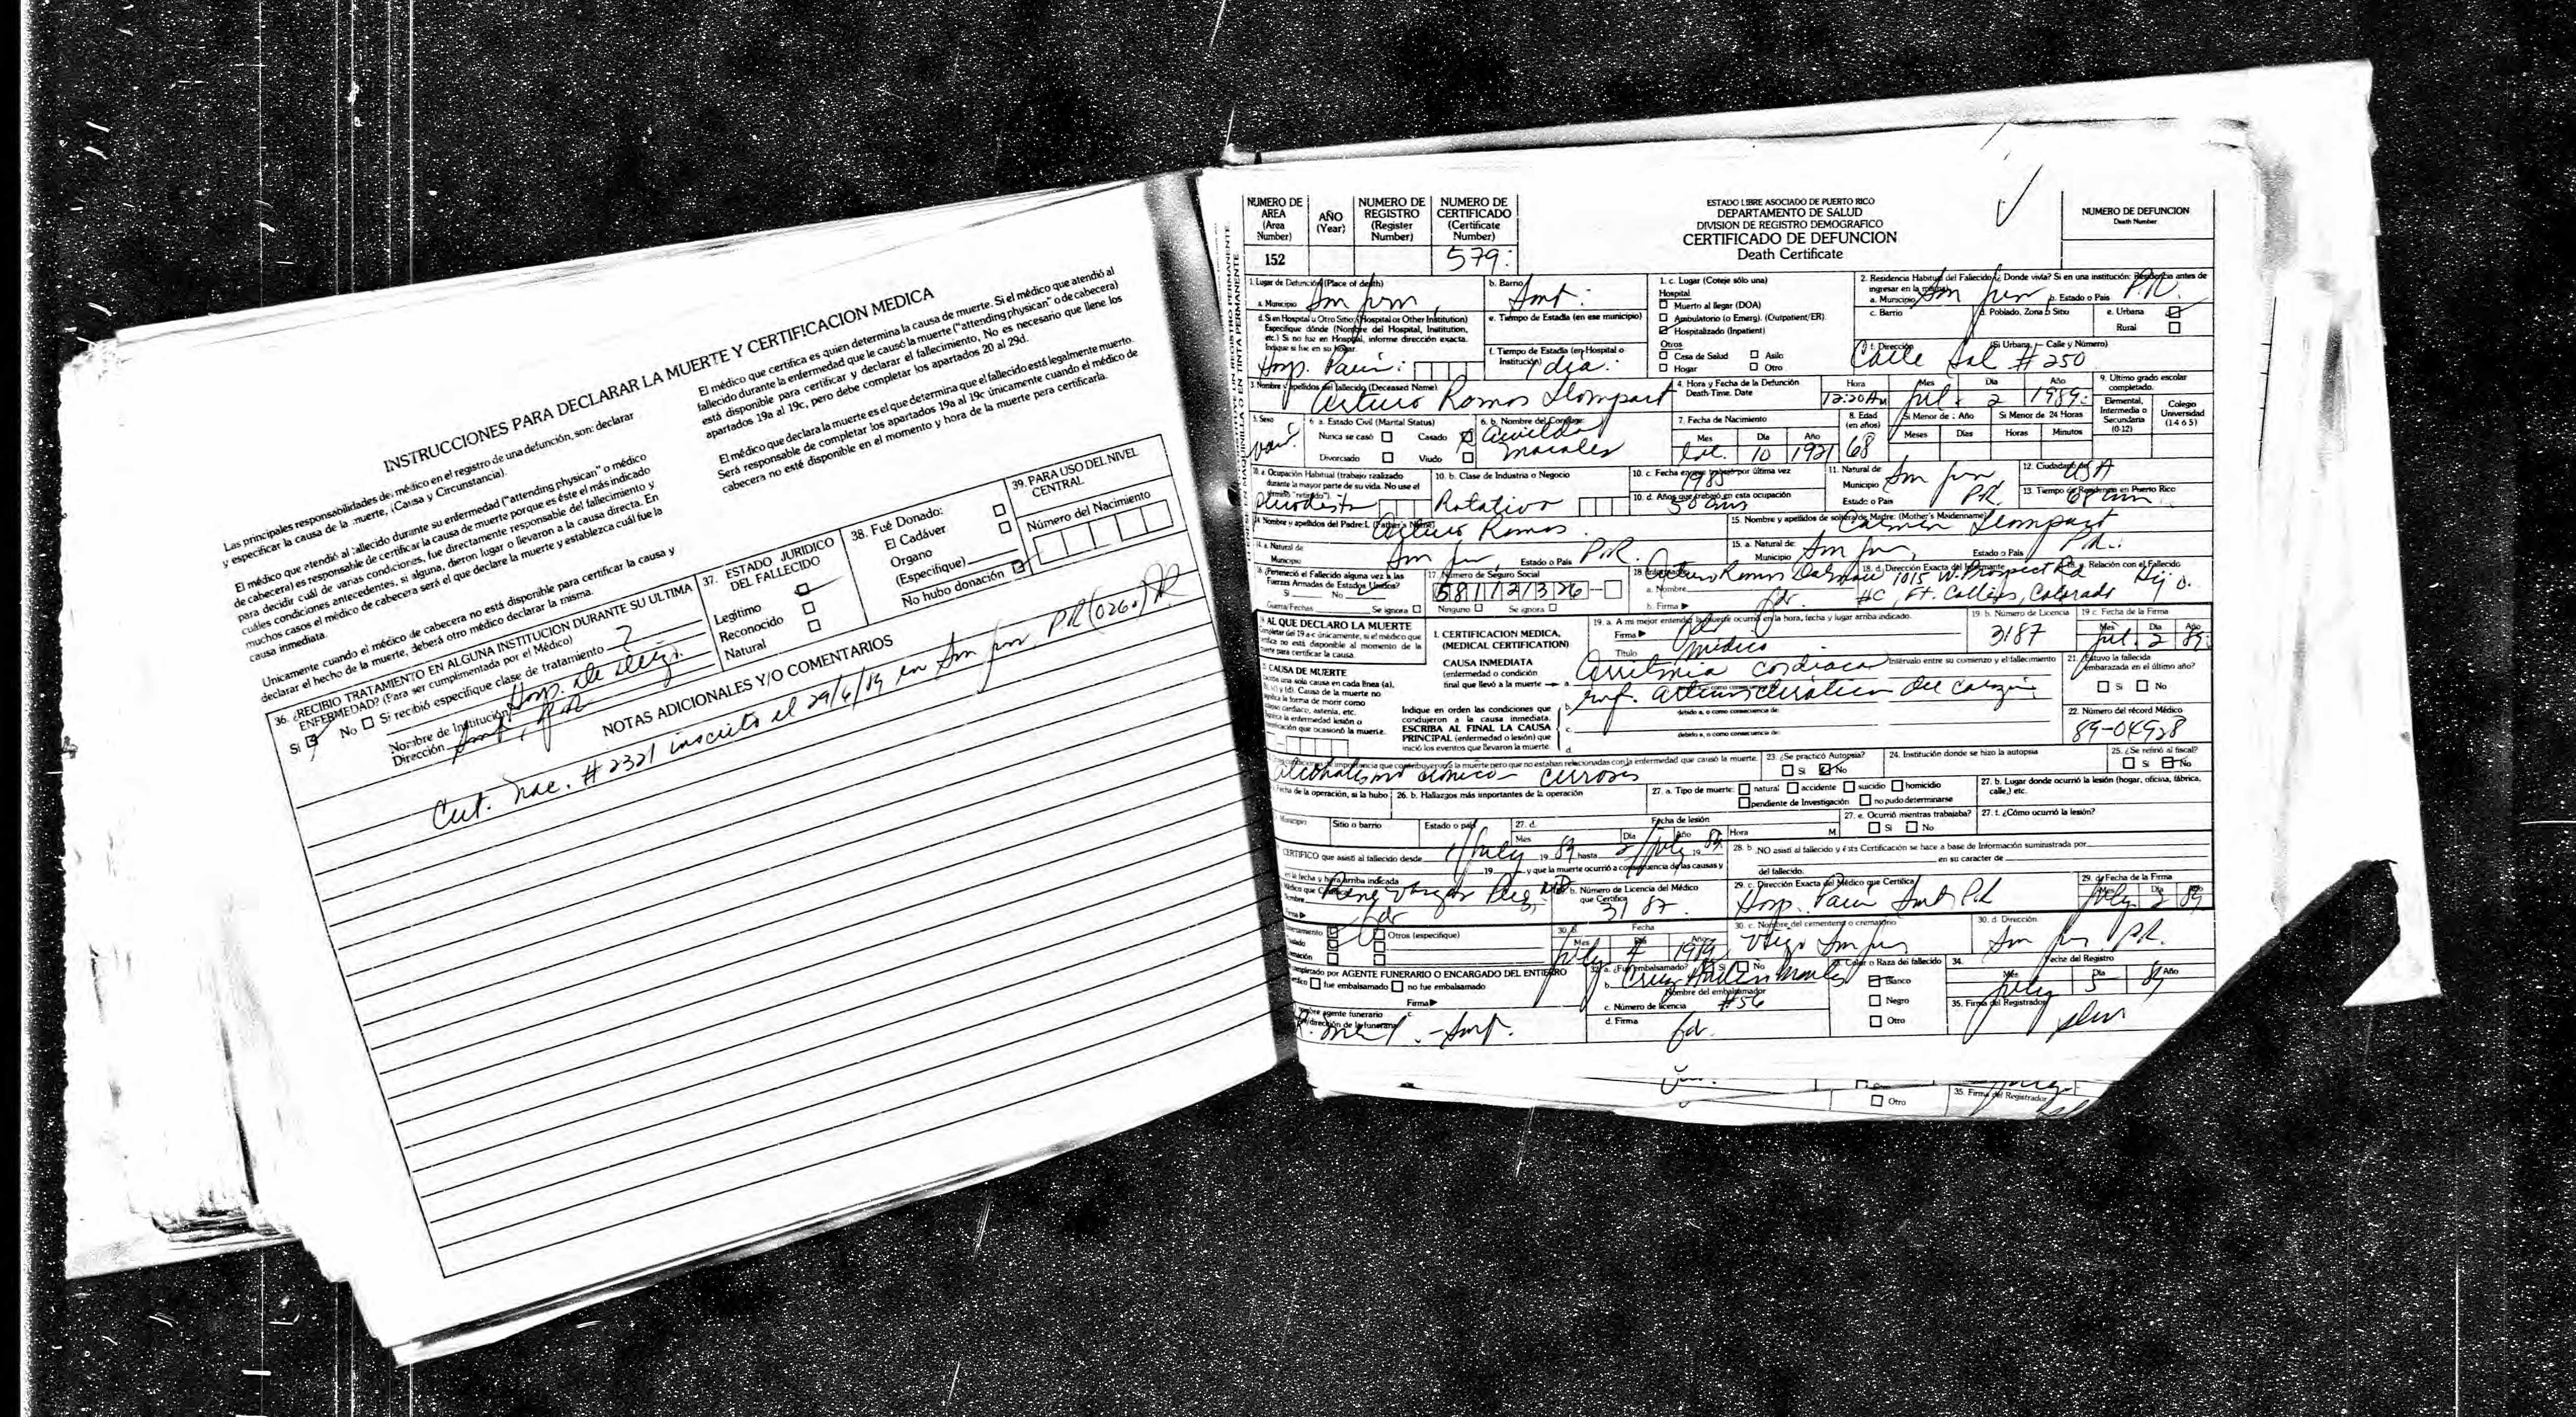 INSTRUCCIONES PARA DECLARAR LA MUERTE Y CERTIFICACION MEDICA
Las principales responsabilidades del médico en el registro de una defunción, son: declarar
y especificar la causa de la muerte, (Causa y Circunstancia).
El médico que atendió al fallecido durante su enfermedad ("attending physican" o médico
de cabecera) es responsable de certificar la causa de muerte porque es éste el más indicado
para decidir cuál de varias condiciones, fue directamente responsable del fallecimiento y
cuáles condiciones antecedentes, si alguna, dieron lugar o llevaron a la causa directa. En
muchos casos el médico de cabecera será el que declare la muerte y establezca cuál fue la
causa inmediata.
Unicamente cuando el médico de cabecera no está disponible para certificar la causa y
declarar el hecho de la muerte, deberá otro médico declarar la misma.
El médico que certifica es quien determina la causa de muerte. Si el médico que atendió al
fallecido durante la enfermedad que le causó la muerte ("attending physican" o de cabecera)
está disponible para certificar y declarar el fallecimiento, No es necesario que llene los
apartados 19a al 19c, pero debe completar los apartados 20 al 29d.
El médico que declara la muerte es el que determina que el fallecido está legalmente muerto.
Será responsable de completar los apartados 19a al 19c únicamente cuando el médico de
cabecera no esté disponible en el momento y hora de la muerte pera certificarla.
36. ¿RECIBIO TRATAMIENTO EN ALGUNA INSTITUCION DURANTE SU ULTIMA
ENFERMEDAD? (Para ser cumplimentada por el Médico)
Si No Si recibió especifique clase de tratamiento ?
Nombre de Institución Hosp. de
Dirección
37. ESTADO JURIDICO
DEL FALLECIDO
Legítimo
Reconocido
Natural
38. Fué Donado:
El Cadáver
Organo
(Especifique)
No hubo donación
39. PARA USO DEL NIVEL
CENTRAL
Número del Nacimiento
NOTAS ADICIONALES Y/O COMENTARIOS
Cert. nac. # 2321 inscrito el 29/6/ en San Juan P.R. (026)
NUMERO DE
AREA
(Area
Number)
152
AÑO
(Year)
NUMERO DE
REGISTRO
(Register
Number)
NUMERO DE
CERTIFICADO
(Certificate
Number)
579
ESTADO LIBRE ASOCIADO DE PUERTO RICO
DEPARTAMENTO DE SALUD
DIVISION DE REGISTRO DEMOGRAFICO
CERTIFICADO DE DEFUNCION
Death Certificate
NUMERO DE DEFUNCION
Death Number
1. Lugar de Defunción (Place of death)
a. Municipio San Juan
b. Barrio Sant.
1. c. Lugar (Coteje sólo una)
Hospital
Muerto al llegar (DOA)
Ambulatorio (o Emerg). (Outpatient/ER).
Hospitalizado (Inpatient)
Otros
Casa de Salud Asilo
Hogar Otro
2. Residencia Habitual del Fallecido ¿ Donde vivía? Si en una institución: Residencia antes de
ingresar en la misma
a. Municipio San Juan b. Estado o Pais P.R.
c. Barrio d. Poblado, Zona o Sitio e. Urbana
Rural
f. Dirección (Si Urbana, - Calle y Número)
Calle Sol # 250
d. Si en Hospital u Otro Sitio: (Hospital or Other Institution)
Especifique dónde (Nombre del Hospital, Institution,
etc.) Si no fue en Hospital, informe dirección exacta.
Indique si fue en su Hogar.
Hosp. Pavía
e. Tiempo de Estadía (en ese municipio)
f. Tiempo de Estadía (en Hospital o
Institución)
1 día.
3. Nombre y apellidos del fallecido (Deceased Name)
Arturo Ramos Llompart
4. Hora y Fecha de la Defunción
Death-Time, Date
Hora Mes Día Año
12:20 AM Jul. 2 1989
9. Ultimo grado escolar
completado.
Elemental,
Intermedia o
Secundaria
(0-12)
Colegio
Universidad
(1 4 6 5)
5. Sexo
Var.
6 a. Estado Civil (Marital Status)
Nunca se casó Casado
Divorciado Viudo
6. b. Nombre del Cónyuge
Awilda
Morales
7. Fecha de Nacimiento
Mes Día Año
10 1921
8. Edad
(en años)
68
Si Menor de 1 Año
Meses Días
Si Menor de 24 Horas
Horas Minutos
10. a. Ocupación Habitual (trabajo realizado
durante la mayor parte de su vida. No use el
término "retirado").
Periodista
10. b. Clase de Industria o Negocio
Rotativo
10. c. Fecha en que trabajó por última vez
1985
10. d. Años que trabajó en esta ocupación
50 años
11. Natural de
Municipio San Juan
Estado o Pais P.R.
12. Ciudadano de USA
13. Tiempo de Residencia en Puerto Rico
68 años
14. Nombre y apellidos del Padre: (Father's Name)
Arturo Ramos
15. Nombre y apellidos de soltera de Madre: (Mother's Maidenname)
Carmen Llompart
14. a. Natural de
Municipio San Juan, Estado o Pais P.R.
15. a. Natural de:
Municipio San Juan, Estado o Pais P.R.
16. ¿Perteneció el Fallecido alguna vez a las
Fuerzas Armadas de Estados Unidos?
Si No
Guerra/Fechas Se ignora
17. Número de Seguro Social
581 12 1326
Ninguno Se ignora
18. Informante
a. Nombre Arturo Ramos
b. Firma fdo.
18. d. Dirección Exacta del Informante
1015 W. Prospect Rd
#C, Ft. Collins, Colorado
Relación con el Fallecido
Hijo.
AL QUE DECLARO LA MUERTE
Completar del 19 a-c únicamente, si el médico que
certifica no está disponible al momento de la
muerte para certificar la causa.
I. CERTIFICACION MEDICA,
(MEDICAL CERTIFICATION)
19. a. A mi mejor entender la muerte ocurrió en la hora, fecha y lugar arriba indicado.
Firma
Título Médico
19. b. Número de Licencia
3187
19 c. Fecha de la Firma
Mes Día Año
Jul 2 89
CAUSA DE MUERTE
CAUSA INMEDIATA
(enfermedad o condición
final que llevó a la muerte a. Arritmia cardíaca
Intérvalo entre su comienzo y el fallecimiento
debido a, o como consecuencia de:
b. Enf. arteriosclerótica del corazón
debido a, o como consecuencia de:
c.
debido a, o como consecuencia de:
d.
Indique en orden las condiciones que
condujeron a la causa inmediata.
ESCRIBA AL FINAL LA CAUSA
PRINCIPAL (enfermedad o lesión) que
inició los eventos que llevaron la muerte.
21. ¿Estuvo la fallecida
embarazada en el último año?
Si No
22. Número del récord Médico
89-04928
importancia que contribuyeron a la muerte pero que no estaban relacionadas con la enfermedad que causó la muerte.
alcoholismo crónico - cirrosis
23. ¿Se practicó Autopsia?
Si No
24. Institución donde se hizo la autopsia
25. ¿Se refirió al fiscal?
Si No
Fecha de la operación, si la hubo
26. b. Hallazgos más importantes de la operación
27. a. Tipo de muerte: natural accidente suicidio homicidio
pendiente de Investigación no pudo determinarse
27. b. Lugar donde ocurrió la lesión (hogar, oficina, fábrica,
calle,) etc.
Municipio Sitio o barrio Estado o país
27. d. Fecha de lesión
Mes Día Año Hora M.
27. e. Ocurrió mientras trabajaba?
Si No
27. f. ¿Cómo ocurrió la lesión?
CERTIFICO que asistí al fallecido desde 1/July 19 89 hasta 2/July 19 89
19 y que la muerte ocurrió a consecuencia de las causas y
en la fecha y hora arriba indicada
28. b. NO asistí al fallecido y ésta Certificación se hace a base de Información suministrada por
en su caracter de
del fallecido.
Médico que Certifica
Nombre René Vargas MD
Firma fdo
b. Número de Licencia del Médico
que Certifica
3187
29. c. Dirección Exacta del Médico que Certifica
Hosp. Pavía Sant. P.R.
29. d. Fecha de la Firma
Mes Día Año
July 2 89
Otros (especifique)
30. b. Fecha
Mes Día Año
July
30. c. Nombre del cementerio o crematorio
Viejo San Juan
30. d. Dirección
San Juan P.R.
completado por AGENTE FUNERARIO O ENCARGADO DEL ENTIERRO
fue embalsamado no fue embalsamado
Firma
a. ¿Fue embalsamado? Si No
b. Cruz
Nombre del embalsamador
c. Número de licencia #56
d. Firma fdo.
Color o Raza del fallecido
Blanco
Negro
Otro
34. Fecha del Registro
Mes Día Año
July 5 89
35. Firma del Registrador
Nombre agente funerario
y dirección de la funeraria
Otro
35. Firma del Registrador